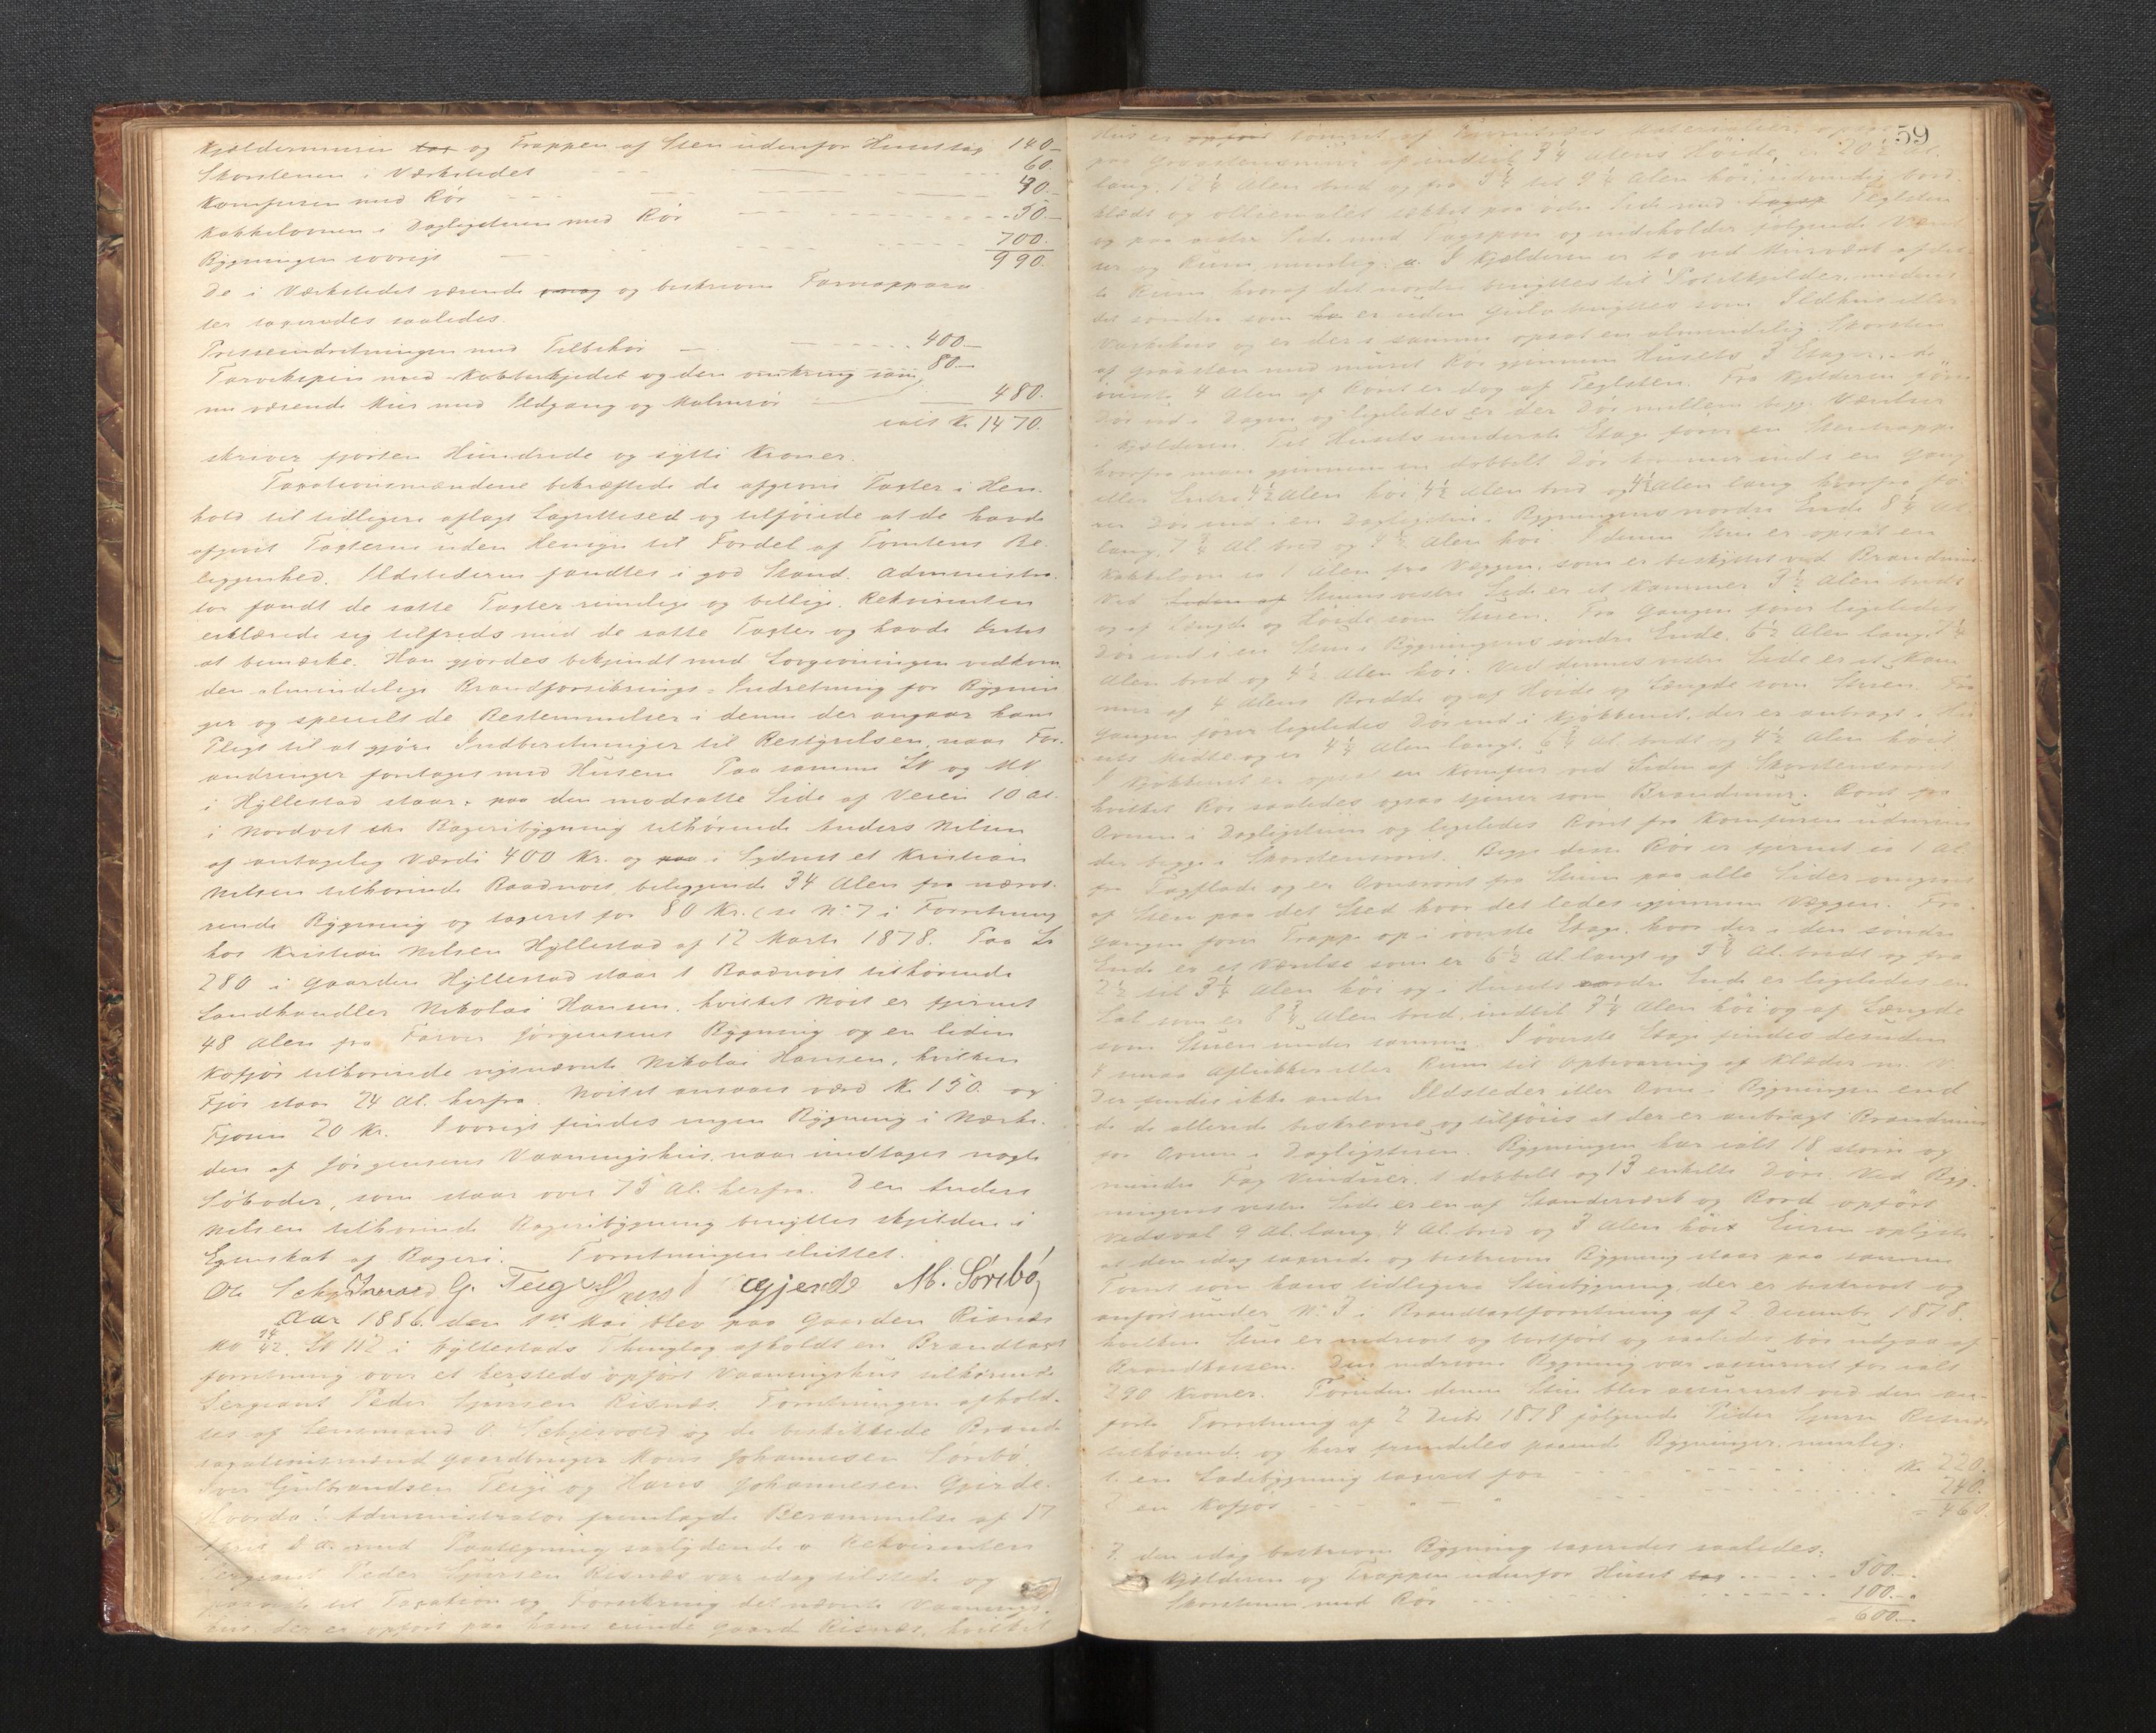 Kjældermuren tax og Trappen af Sten udenfor Huset tax 140-
Skorstenen i Værkstedet 60.
Komfuren med Rør 40.-
Kakkelovnen i Dagligstuen med Rør 50-
Bygningen iøvrigt 700.
990.
De i Værkstedet værende og beskrevne Farveappara-
ter taxeredes saaledes.
Presseindretningen med Tilbehør 400-
Farvekipen med Kobberkjedel og den omkring samme
80-
nu værende Mur med Ildgang og Malmrør 480.
ialt Kr 1470.
skriver fjorten Hundrede og sytti Kroner.
Taxationsmændene bekræftede de afgivne Taxter i Hen-
hold til tidligere aflagt Lagrettesed og tilføiede at de havde
afgivet Taxterne uden Hensyn til Fordel af Tomtens Be-
liggenhed. Ildstederne fandtes i god Stand. Administra-
tor fandt de satte Taxter rimelige og billige. Rekvirenten
erklærede sig tilfreds med de satte Taxter og havde Intet
at bemærke. Han gjordes bekjendt med Lovgivningen vedkom
den almindelige Brandforsikrings-Indretning for Bygnin
ger og specielt de Bestemmelser i denne der angaar hans
Pligt til at gjøre Indberetninger til Bestyrelsen, naar For-
andringer foretages med Husene. Paa samme LN og MN
i Hyllestad staar paa den modsatte Side af Veien 10 al.
i Nordvest en Bageribygning tilhørende Anders Nilsen
af antagelig Værdi 400 Kr. og paa i Sydvest et Kristian
Nilsen tilhørende Baadnøst, beliggende 34 Alen fra nærvæ-
rende Bygning og taxeret for 80 Kr. (se No 7 i Forretning
hos Kristian Nilsen Hyllestad af 12 Marts 1878. Paa L
280 i Gaarden Hyllestad staar 1 Baadnøst tilhørende
Landhandler Nikolai Hansen, hvilket Nøst er fjernet
48 Alen fra Farver Jørgensens Bygning og en liden
Kofjøs tilhørende nysnævnte Nikolai Hansen, hvilken
Fjøs staar 24 Al. herfra. Nøstet ansaaes værd Kr. 150. og
Fjøsen 20 Kr. Iøvrigt findes ingen Bygning i Nærhe-
den af Jørgensens Vaaningshus, naar undtages nogle
Søboder, som staar over 75 Al. herfra. Den Anders
Nilsen tilhørende Bageribygning benyttes skjelden i
Egenskab af Bageri. Forretningen sluttet.
O. Schjervold G. Teige Gjerde M. Sørebø
Aar 1886. den 1ste Mai blev paa Gaarden Risnæs
LN 112 i Hyllestads Thinglag afholdt en Brandtaxt
forretning over et hersteds opført Vaaningshus tilhørende
Sergeant Peder Sjursen Risnæs. Forretningen afhold-
tes af Lensmand O. Schjervold og de beskikkede Brand-
taxationsmænd Gaardbruger Mons Johannesen Sørebø,
Iver Gulbrandsen Teige og Hans Johannesen Gjerde.
Hvorda! Administrator fremlagde Berammelse af 17
April d. A. med Paategning saalydende a Rekvirenten
Sergeant Peder Sjursen Risnæs var idag tilstede og
til Taxation og Forsikring det nævnte Vaanings-
hus, der er opført paa hans eiende Gaard Risnæs, hvilket
59
Hus er opført tømret af Materialier, opsat
paa Graastensmur af indtil 3 1/4 Alens Høide, er 20 1/2 Al.
lang, 12 1/4 Alen bred og fra Alen høi, udvendig bord-
klædt og oliemalet, tækket paa østre Side med Teglsten
og paa vestre Side med Tagspon og indeholder følgende Værel-
ser og Rum, nemlig: a. I Kjælderen er to ved Murværk afdel-
te Rum hvoraf det nordre benyttes til Potetkjelder, medens
det søndre som er uden Gulv benyttes som Ildhus eller
Vaskehus og er der i samme opsat en almindelig Skorsten
af graasten med muret Rør gjennem Husets 3 Etager, de
øverste 4 Alen af Røret er dog af Teglsten. Fra Kjelderen fører
Dør ud i Dagen og ligeledes er der Dør mellem begge Værelser
i Kjelderen. Til Husets underste Etage fører en Stentrappe
hvorfra man gjennem en dobbelt Dør kommer ind i en Gang
eller Entre 4 1/2 Alen høi 4 1/2 Alen bred og 4 1/2 Alen lang herfra fø-
rer Dør ind i en Dagligstue i Bygningens nordre Ende 8 1/4 Al.
lang, 7 3/4 Al. bred og 4 1/2 Alen høi. I denne Stue er opsat en
Kakkelovn ca 1 Alen fra Væggen, som er beskyttet ved Brandmur
Ved Siden af Stuens vestre Side er et Kammer 3 1/2 Alen bredt
og af Længde og Høide som Stuen. Fra Gangen fører ligeledes
Dør ind i en Stue i Bygningens søndre Ende, 6 1/2 Alen lang,
Alen bred og 4 1/2 Alen høi. Ved dennes vestre Side er et Kam
mer af 4 Alens Bredde og af Høide og Længde som Stuen. Fra
Gangen fører ligeledes Dør ind i Kjøkkenet, der er anbragt i Hu
sets Midte og er 4 1/2 Alen langt, 6 3/4 Al. bredt og 4 1/2 Alen høit
I Kjøkkenet er opsat en Komfur ved Siden af Skorstensrøret
hvilket Rør saaledes ogsaa tjener som Brandmur. Røret fra
Ovnen i Dagligstuen og ligeledes Røret fra Komfuren udmun
der begge i Skorstensrøret. Begge disse Rør er fjernet ca 1 Al
fra Tagflade og er Ovnsrøret fra Stuen paa alle Sider omgivet
af Sten paa det Sted hvor det ledes igjennem Væggen. Fra
Gangen fører Trappe op i øverste Etage, hvor der i den søndre
Ende er et Værelse som er 6 1/2 Al. langt og 3 3/4 Al. bredt og fra
2 1/2 til 3 1/4 Alen høi og i Husets nordre Ende er ligeledes en
Sal som er 8 3/4 Alen bred, indtil 3 1/4 Alen høi og af Længde
som Stuen under samme. I øverste Etage findes desuden
4 smaa Aflukker eller Rum til Opbevaring af Klæder m. V.
Der findes ikke andre Ildsteder eller Ovne i Bygningen end
de de allerede beskrevne og tilføies at der er anbragt Brandmur
for Ovnen i Dagligstuen. Bygningen har ialt 18 større og
mindre Fag Vinduer, 1 dobbelt og 13 enkelte Døre. Ved Byg-
ningens vestre Side er en af Standerværk og Bord opført
Vedsval 9 Al. lang, 4 Al. bred og 3 Alen høi. Eieren oplyste
at den idag taxerede og beskrevne Bygning staar paa samme
Tomt som hans tidligere Stuebygning, der er beskrevet og
anført under No 3 i Brandtaxtforretning af 2 December 1878.
hvilken Stue er nedrevet og bortført og saaledes bør udgaa af
Brandkassen. Den nedrevne Bygning var assureret for ialt
290 Kroner. Foruden denne Stue blev assureret ved den an-
førte Forretning af 2 Decbr 1878 følgende Peder Sjursen Risnæs
tilhørende og hers fremdeles staaende Bygninger, nemlig:
1. en Ladebygning taxeret for Kr. 220.
2 en Kofjøs 240.
= 460.
3. den idag beskrevne Bygning taxeredes saaledes:
Kjælderen og Trappen udenfor Huset tax 500.-
Skorstenen med Rør 100.-
600.-